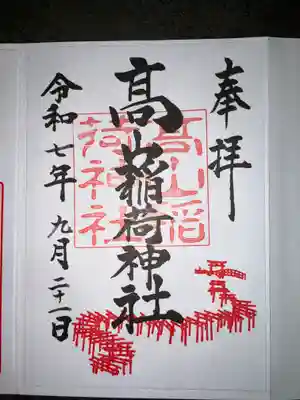 奉拝
高山稲荷神社
高山稲荷神社
令和七年 九月 二十一日